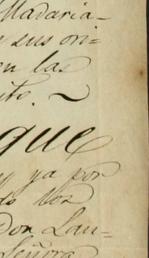 Madaria=
n sus ori=
en las
ito. ~
que
y ya por
do los
Don Lau=
Señora